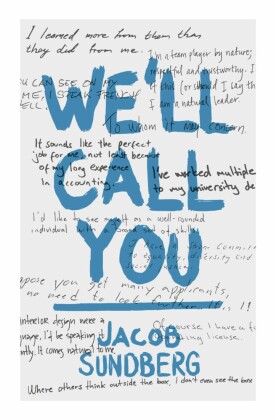 I learned more from them than
they did from me.
I'm a team player by nature;
respectful and trustworthy. I
of this (or should I say th
I am a natural leader.
U CAN SEE ON MY
ME, I SPEAK FRENCH
ELL.
WE'LL
To whom it may concern,
It sounds like the perfect
job for me, not least because
of my long experience
in accounting.
CALL
I've worked multiple
to my university de
I'd like to see myself as a well-rounded
individual with a broad set of skills
YOU
to equality, diversity and
social justice
pose you get many applicants,
no need to look further
interior design were a
guage, I'd be speaking it
ntly. It comes natural to me.
Of course I have a
driving license.
JACOB
SUNDBERG
Where others think outside the box, I don't even see the box